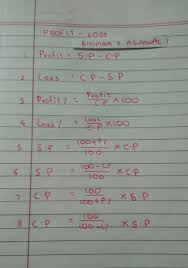 PROFIT - LOSS
BHUMIKA S. AGRAWAL
1. Profit = S.P - C.P
2 Loss = C.P - S.P
3. Profit % = Profit / C.P × 100
4. Loss % = Loss / C.P × 100
5. S.P = 100+P% / 100 × C.P
6. S.P = 100-L% / 100 × C.P
7 C.P = 100 / 100+P% × S.P
8 C.P = 100 / 100-L% × S.P